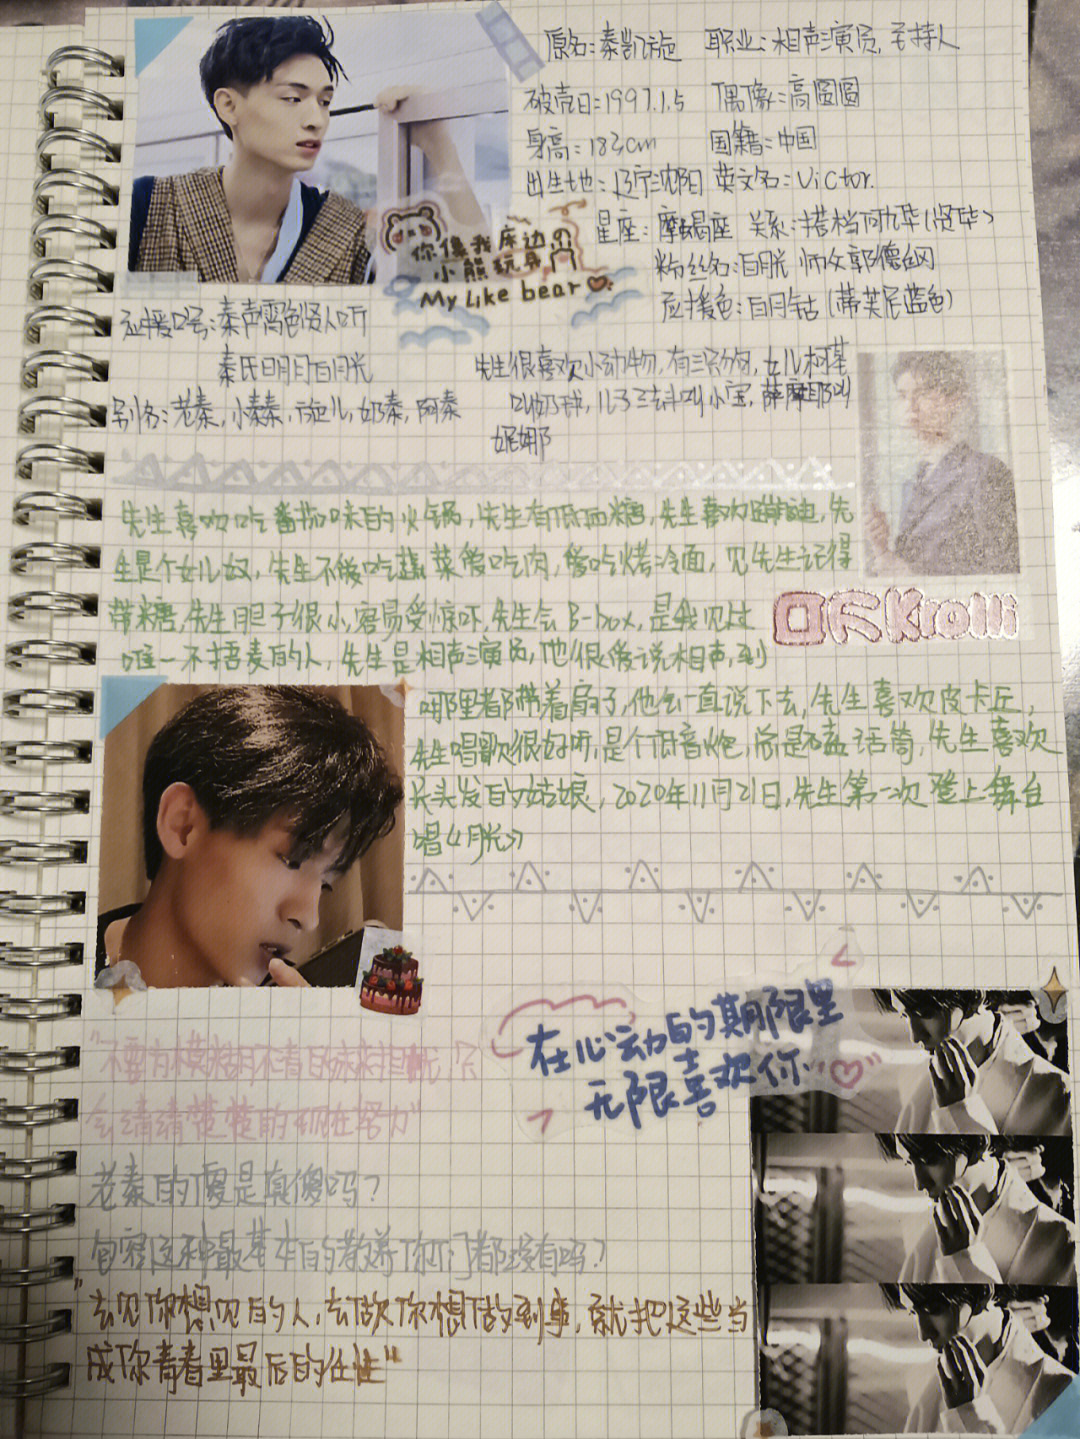 原名:秦凯旋 职业:相声演员,主持人
破壳日:1997.1.5 偶像:高圆圆
身高:183cm 国籍:中国
出生地:辽宁沈阳 英文名:Victor.
星座:摩羯座 关系:搭档何九华(贤华)
粉丝名:白月光 师父郭德纲
应援色:白月钻(蒂芙尼蓝色)
你像我床边的
小熊玩具
My like bear
应援口号:秦声霄色贤人听
秦氏明月白月光
别名:老秦,小秦秦,旋儿,奶秦,阿秦
先生很喜欢小动物,有三只狗,女儿柯基
叫奶球,儿子三斗叫小宝,萨摩耶叫
妮娜
先生喜欢吃番茄味的火锅,先生有低血糖,先生喜欢蹦迪,先
生是个女儿奴,先生不爱吃蔬菜爱吃肉,爱吃烤冷面,见先生记得
带糖,先生胆子很小容易受惊吓,先生会B-box,是我见过
唯一不捂麦的人,先生是相声演员,他很爱说相声,到
哪里都带着扇子,他会一直说下去,先生喜欢皮卡丘,
先生唱歌很好听,是个低音炮,总是磕话筒,先生喜欢
长头发的姑娘,2020年11月21日,先生第一次登上舞台
唱《月光》
在心动的期限里
无限喜欢你
"不要为模糊不清的未来担忧 只
会清清楚楚的现在努力"
老秦的傻是真傻吗?
包容这种最基本的教养你们都没有吗?
"去见你想见的人,去做你想做到事,就把这些当
成你青春里最后的任性"